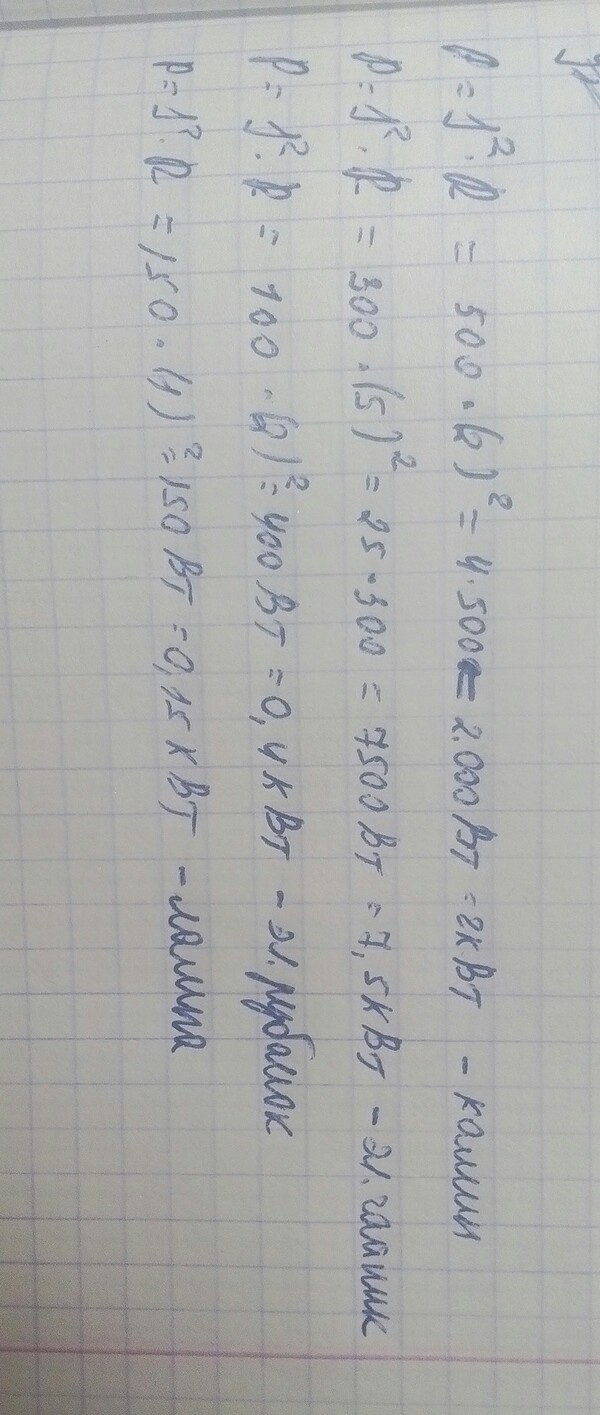 P = J² · R = 500 · (2)² = 4·500 = 2.000 Вт = 2 кВт - камин
P = J² · R = 300 · (5)² = 25·300 = 7500 Вт = 7,5 кВт - эл. чайник
P = J² · R = 100 · (2)² = 400 Вт = 0,4 кВт - эл. рубанок
P = J² · R = 150 · (1)² = 150 Вт = 0,15 кВт - лампа